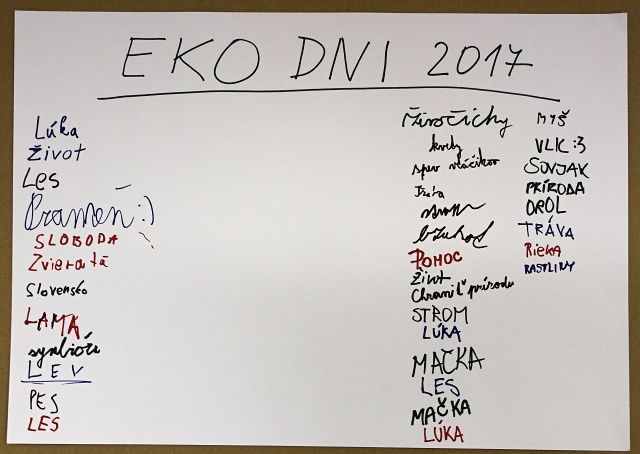 EKO DNI 2017
Lúka
Život
Les
Prameň :)
SLOBODA
Zvieratá
Slovensko
LAMA
symbióza
LEV
PES
LES
Živočíchy
kvety
spev vtáčikov
Tráva
strom
POMOC
Život
Chrániť prírodu
STROM
LÚKA
MAČKA
LES
MAČKA
LÚKA
MYŠ
VLK :3
SOVJAK
PRÍRODA
OROL
TRÁVA
Rieka
RASTLINY